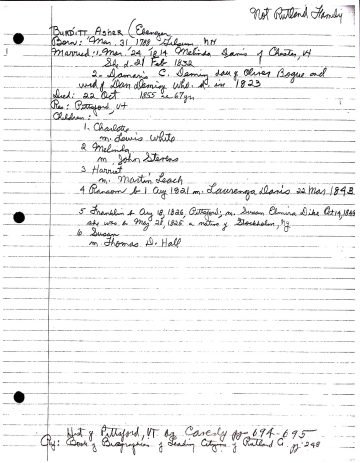 Not Rutland Family
BURDITT Asher (Ebenezer
Born: Mar. 31 1788 Gilsum NH
Married: 1. Mar. 24 1814 Melinda Davis of Chester, Vt
She d. 21 Feb 1832
2. Damaris C. Deming dau of Oliver Bogue and
wid of Dan Deming who d. in 1823
Died: 22 Oct 1855 ae 67 yrs
Res: Pittsford, Vt
Children:
1. Charlotte
m. Lewis White
2 Melinda
m. John Stevens
3 Harriet
m. Martin Leach
4 Ransom b 1 Aug 1821 m. Lauronza Davis 22 Mar 1843
5 Franklin b Aug 18, 1826, Pittsford; m. Susan Elmira Dike Oct 14, 
she was b May 28, 1825 a native of Stockholm, NY
6 Susan
m Thomas D. Hall
Hist of Pittsford, VT. by Caverly pp-694-695
Ref: Book of Biographies of Leading Citizens of Rutland Co pg-248